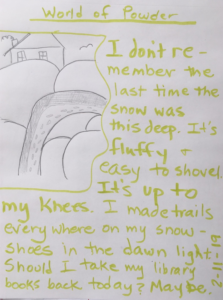 World of Powder
I don't re-
member the
last time the
snow was
this deep. It's
fluffy +
easy to shovel.
It's up to
my knees. I made trails
everywhere on my snow-
shoes in the dawn light.
Should I take my library
books back today? Maybe.